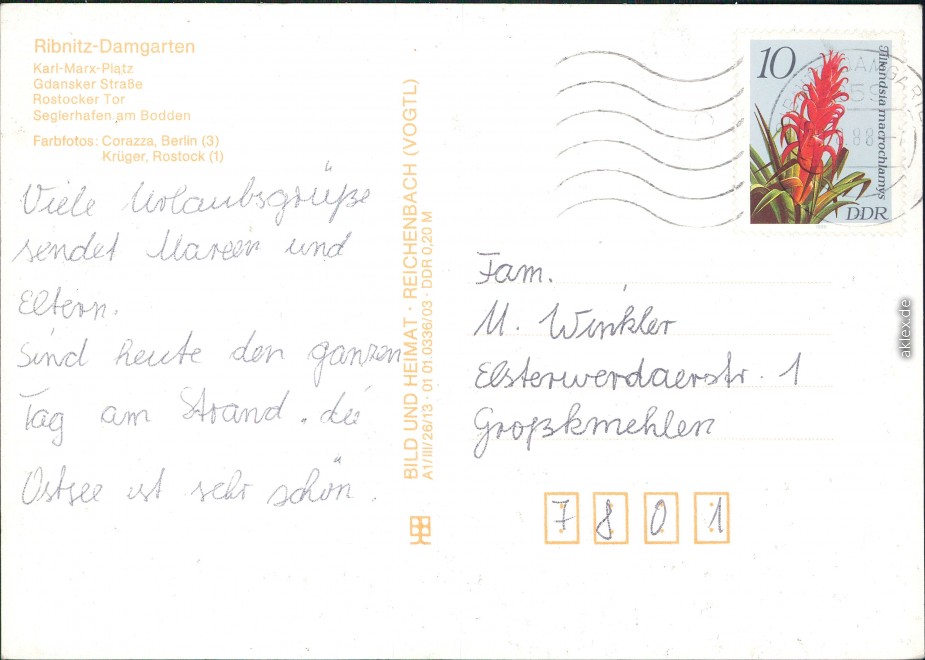 Ribnitz-Damgarten
Karl-Marx-Platz
Gdansker Straße
Rostocker Tor
Seglerhafen am Bodden
Farbfotos: Corazza, Berlin (3)
Krüger, Rostock (1)
Viele Urlaubsgrüße
sendet und
Eltern.
Sind heute den ganzen
Tag am Strand. die
Ostsee ist sehr schön.
BILD UND HEIMAT · REICHENBACH (VOGTL)
A1/III/26/13 · 01 01 0336/03 · DDR 0,20 M
10
Tillandsia macrochlamys
DDR
Fam.
M. Winkler
Elsterwerdaerstr. 1
Großkmehlen
7801
akilex.de